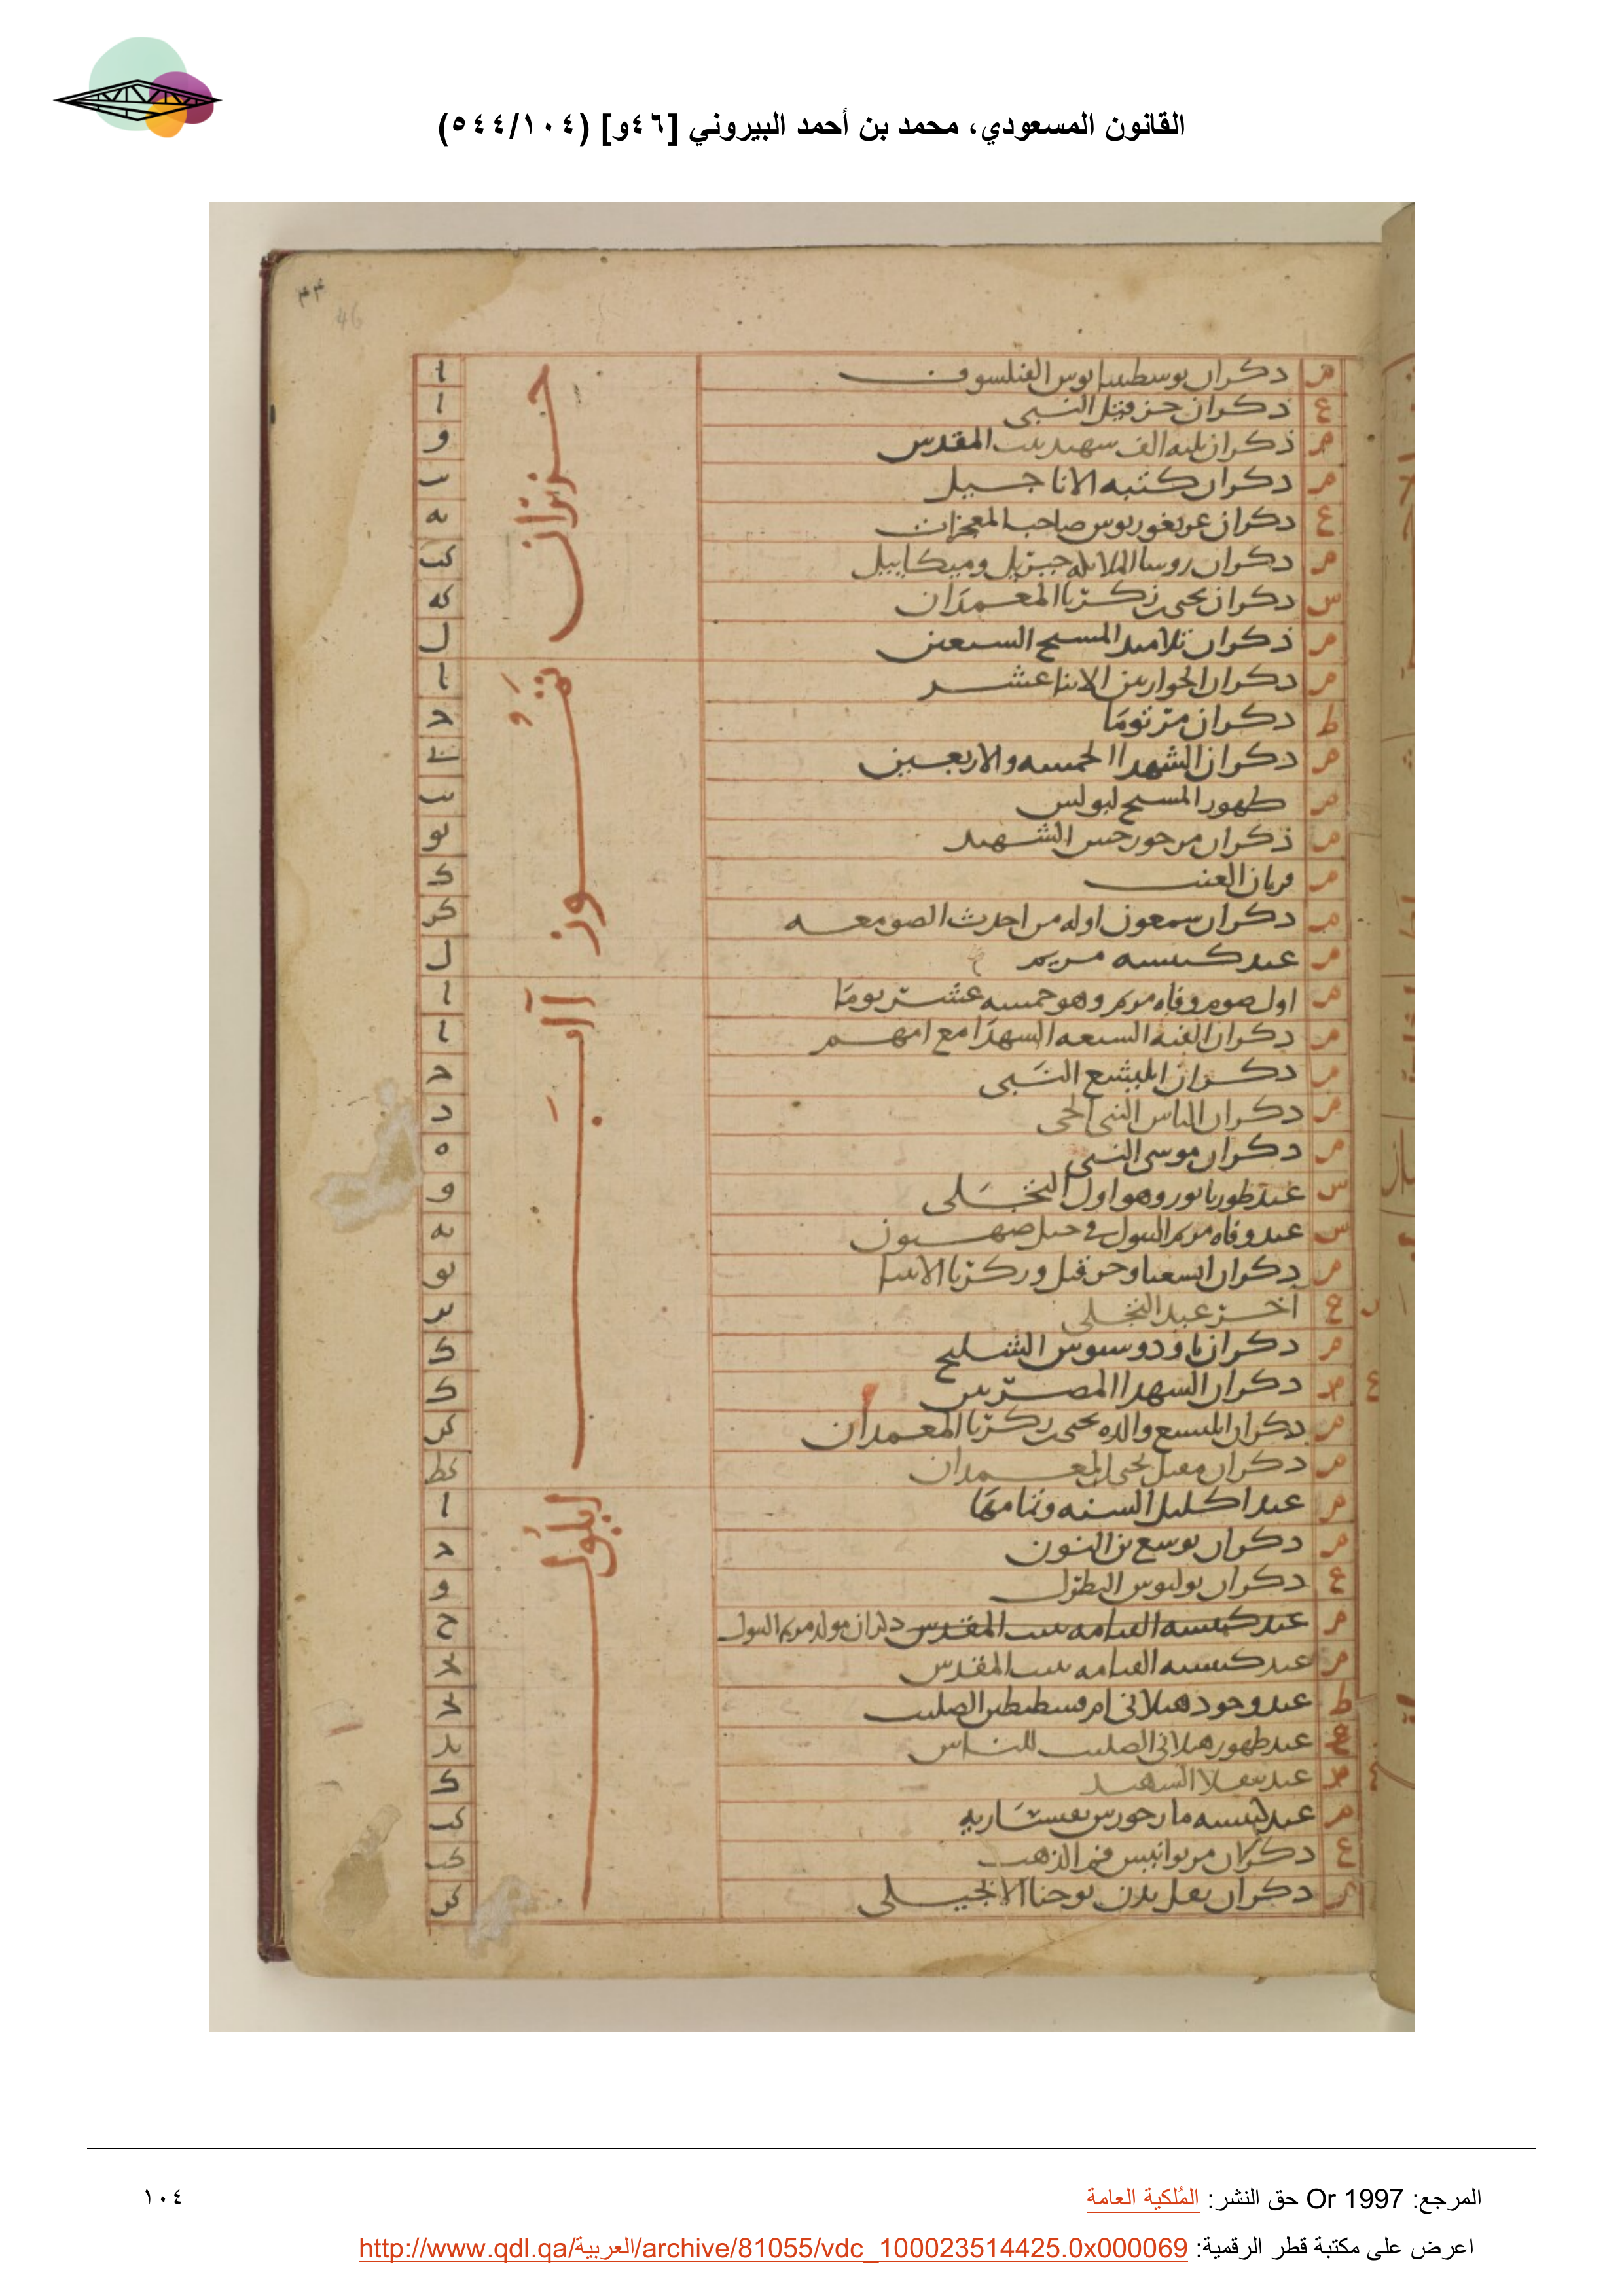 القانون المسعودي، محمد بن أحمد البيروني [٤٦و] (٥٤٤/١٠٤)
٤٤
46
حزيران
م دكران يوسطينيانوس الفيلسوف ا
ع دكران حزقيل النبي ا
م ذكران ثلثه الف شهيد ببيت المقدس و
م دكران كتبه الاناجيل يب
ع دكران غريغوريوس صاحب المعجزات يه
م دكران روسا الملائكه جبريل وميكاييل كب
س دكران يحيى بن زكريا المعمدان كه
م ذكران تلاميد المسيح السبعين ل
تموز
م دكران الحواريين الاثنا عشر ا
ط دكران مر توما ج
م دكران الشهدا الخمسه والاربعين
م ظهور المسيح لبولس يب
م ذكران مر جورجس الشهيد يو
م قربان العنب ك
م دكران سمعون اوله من احدث الصومعه كز
م عيد كنيسه مريم ل
آب
م اول صوم وفاه مريم وهو خمسه عشر يوما ا
م دكران الفتيه السبعه الشهدا مع امهم ا
م دكران اليشع النبي ج
م دكران الياس النبي الحي د
م دكران موسى النبي ه
س عيد طورتابور وهو اول التجلى و
س عيد وفاه مريم البتول في جبل صهيون يه
م دكران اشعيا وحزقيل وزكريا الانبيا يو
ع آخر عيد التجلى يز
م دكران تاودوسيوس الشليح ك
ع م دكران الشهدا المصريين ك
م دكران اليسبع والده يحيى بن زكريا المعمدان كو
م دكران مقتل يحيى المعمدان كط
ايلول
م عيد اكليل السنه وتمامها ا
م دكران يوسع بن النون ج
ع دكران بوليوس البطرك و
م عيد كنيسه القيامه ببيت المقدس دكران مولد مريم البتول ح
م عيد كنيسه القيامه ببيت المقدس يج
ط عيد وجود هيلانى ام قسطنطين الصليب يج
ع عيد ظهور هيلانى الصليب للناس يد
ع م عيد الشهيد ك
م عيد كنيسه مار جورس كب
ع دكران مر يوانيس فم الذهب كب
م دكران نقل بدن يوحنا الانجيلى كو
المرجع: Or 1997 حق النشر: المُلكية العامة
١٠٤
اعرض على مكتبة قطر الرقمية: http://www.qdl.qa/العربية/archive/81055/vdc_100023514425.0x000069